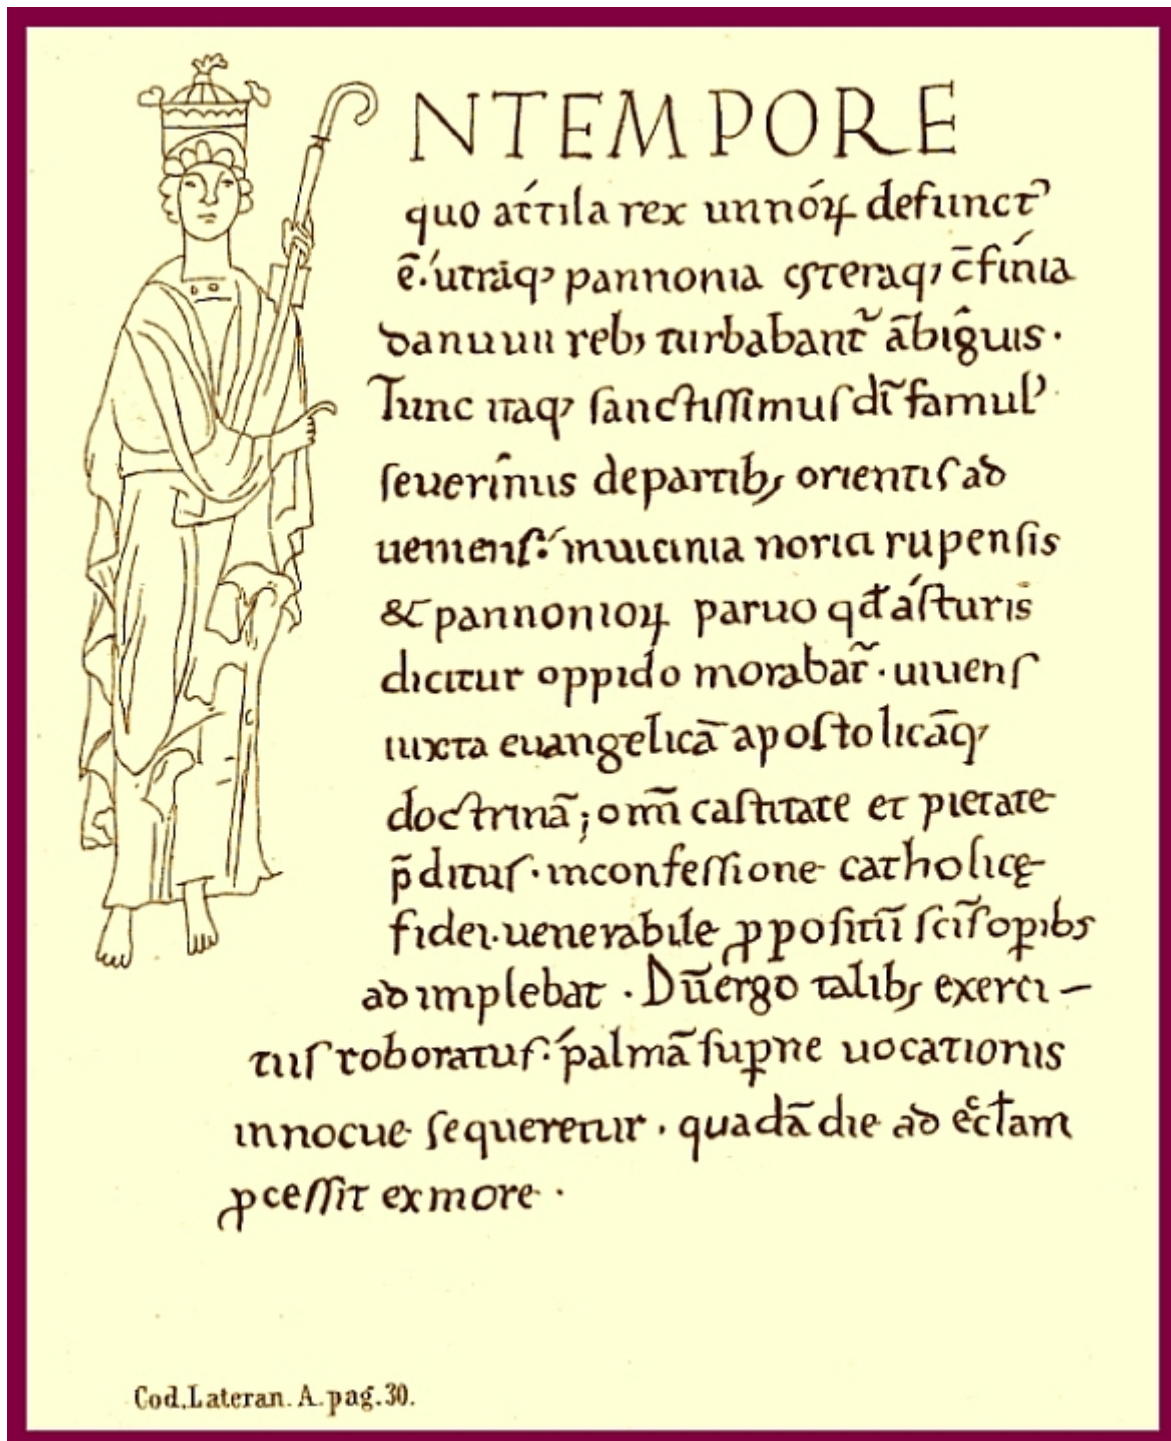 NTEMPORE
quo attila rex unnóꝝ defunct᾽
ē. utráq; pannonia cęteraq; c̄finia
danuuii reb; turbabant᷑ ābiguis ·
Tunc itaq; sanctissimus dī famul᾽
seuerinus departib; orientis ad
ueniens: inuicinia norici rupensis
& pannonioꝝ paruo qđ ásturis
dicitur oppido morabat᷑ · uiuens
iuxta euangelicā apostolicāq;
doctrinā; omī castitate et pietate
p̄ditus · inconfessione catholicę
fidei · uenerabile ꝓpositū scīs oꝑib;
adimplebat · Dū ergo talib; exerci–
tiis roboratus: palmā suꝑne uocationis
innocue sequeretur · quadā die ad eccłam
ꝓcessit exmore ·
Cod. Lateran. A. pag. 30.